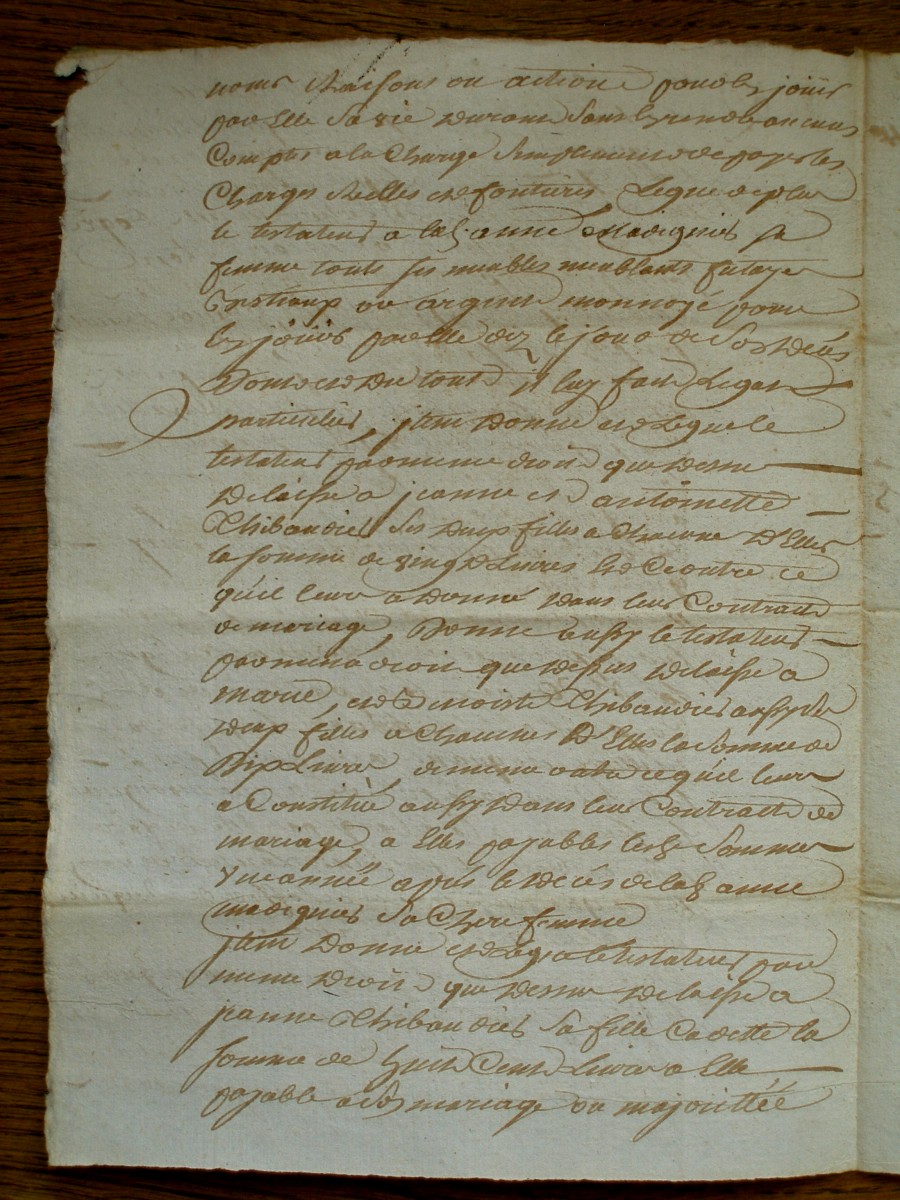 noms Raisons ou actions pour les joüir
par Elle Sa vie durant Sans En rendre aucuns
Comptes a la Charge Seulement de payer les
Charges Reelles et fontieres Legue de plus
le testateur a lad anne Madignier sa
femme touts ses meubles meublants
Bestiaux ou argent monnoyé pour
les joüir par Elle dez le jour de Son deces
Dont et du tout il luy fait Legat
particulier, jtem donne et Legue le
testateur par meme droit que dessus
delaisse a jeanne et antoinette
Thibaudier Ses deux filles a Chacune D'Elles
la somme de vingt Livres Et Ce outre ce
qu'il leur a donné dans leur Contract
de mariage, Donne aussy le testateur
par meme droit que dessus delaisse a
marie, et Benoiste Thibaudier aussy Ses
deux filles a Chacunes D'Elles la Somme de
Dix Livres, de meme outre ce qu'il leur
a Constitué aussy dans leur Contract de
mariage, a Elles payables lesd Sommes
vne année apres le deces de lad anne
madignier Sa Chere femme
jtem Donne et Legue le testateur par
meme droit que dessus delaisse a
jeanne Thibaudier Sa fille Cadette la
somme de huit Cent Livres a Elle
payable a Son mariage ou majorittéé